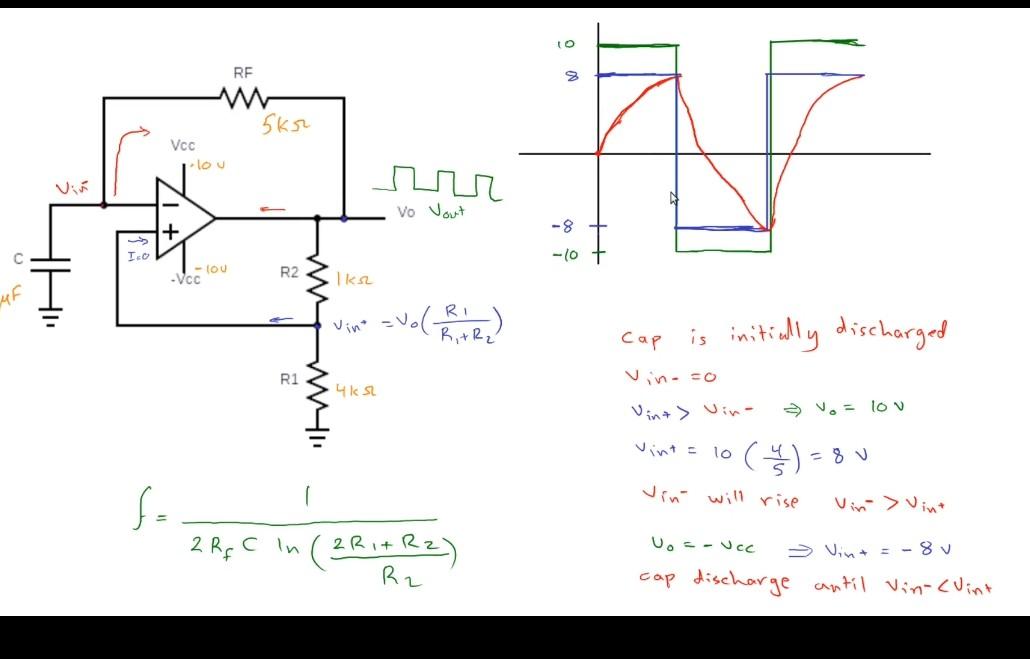 RF
5kΩ
Vcc
-10v
Vin-
Vo
Vout
C
I=0
-10v
-Vcc
μF
R2
1kΩ
Vin+ = Vo(R1/R1+R2)
R1
4kΩ
f = 1/2RfC ln(2R1+R2/R2)
10
8
-8
-10
cap is initially discharged
Vin- =0
Vin+ > Vin- ⇒ Vo = 10 V
Vin+ = 10 (4/5) = 8 V
Vin- will rise Vin- > Vin+
Vo = - Vcc ⇒ Vin+ = - 8 V
cap discharge until Vin- < Vin+